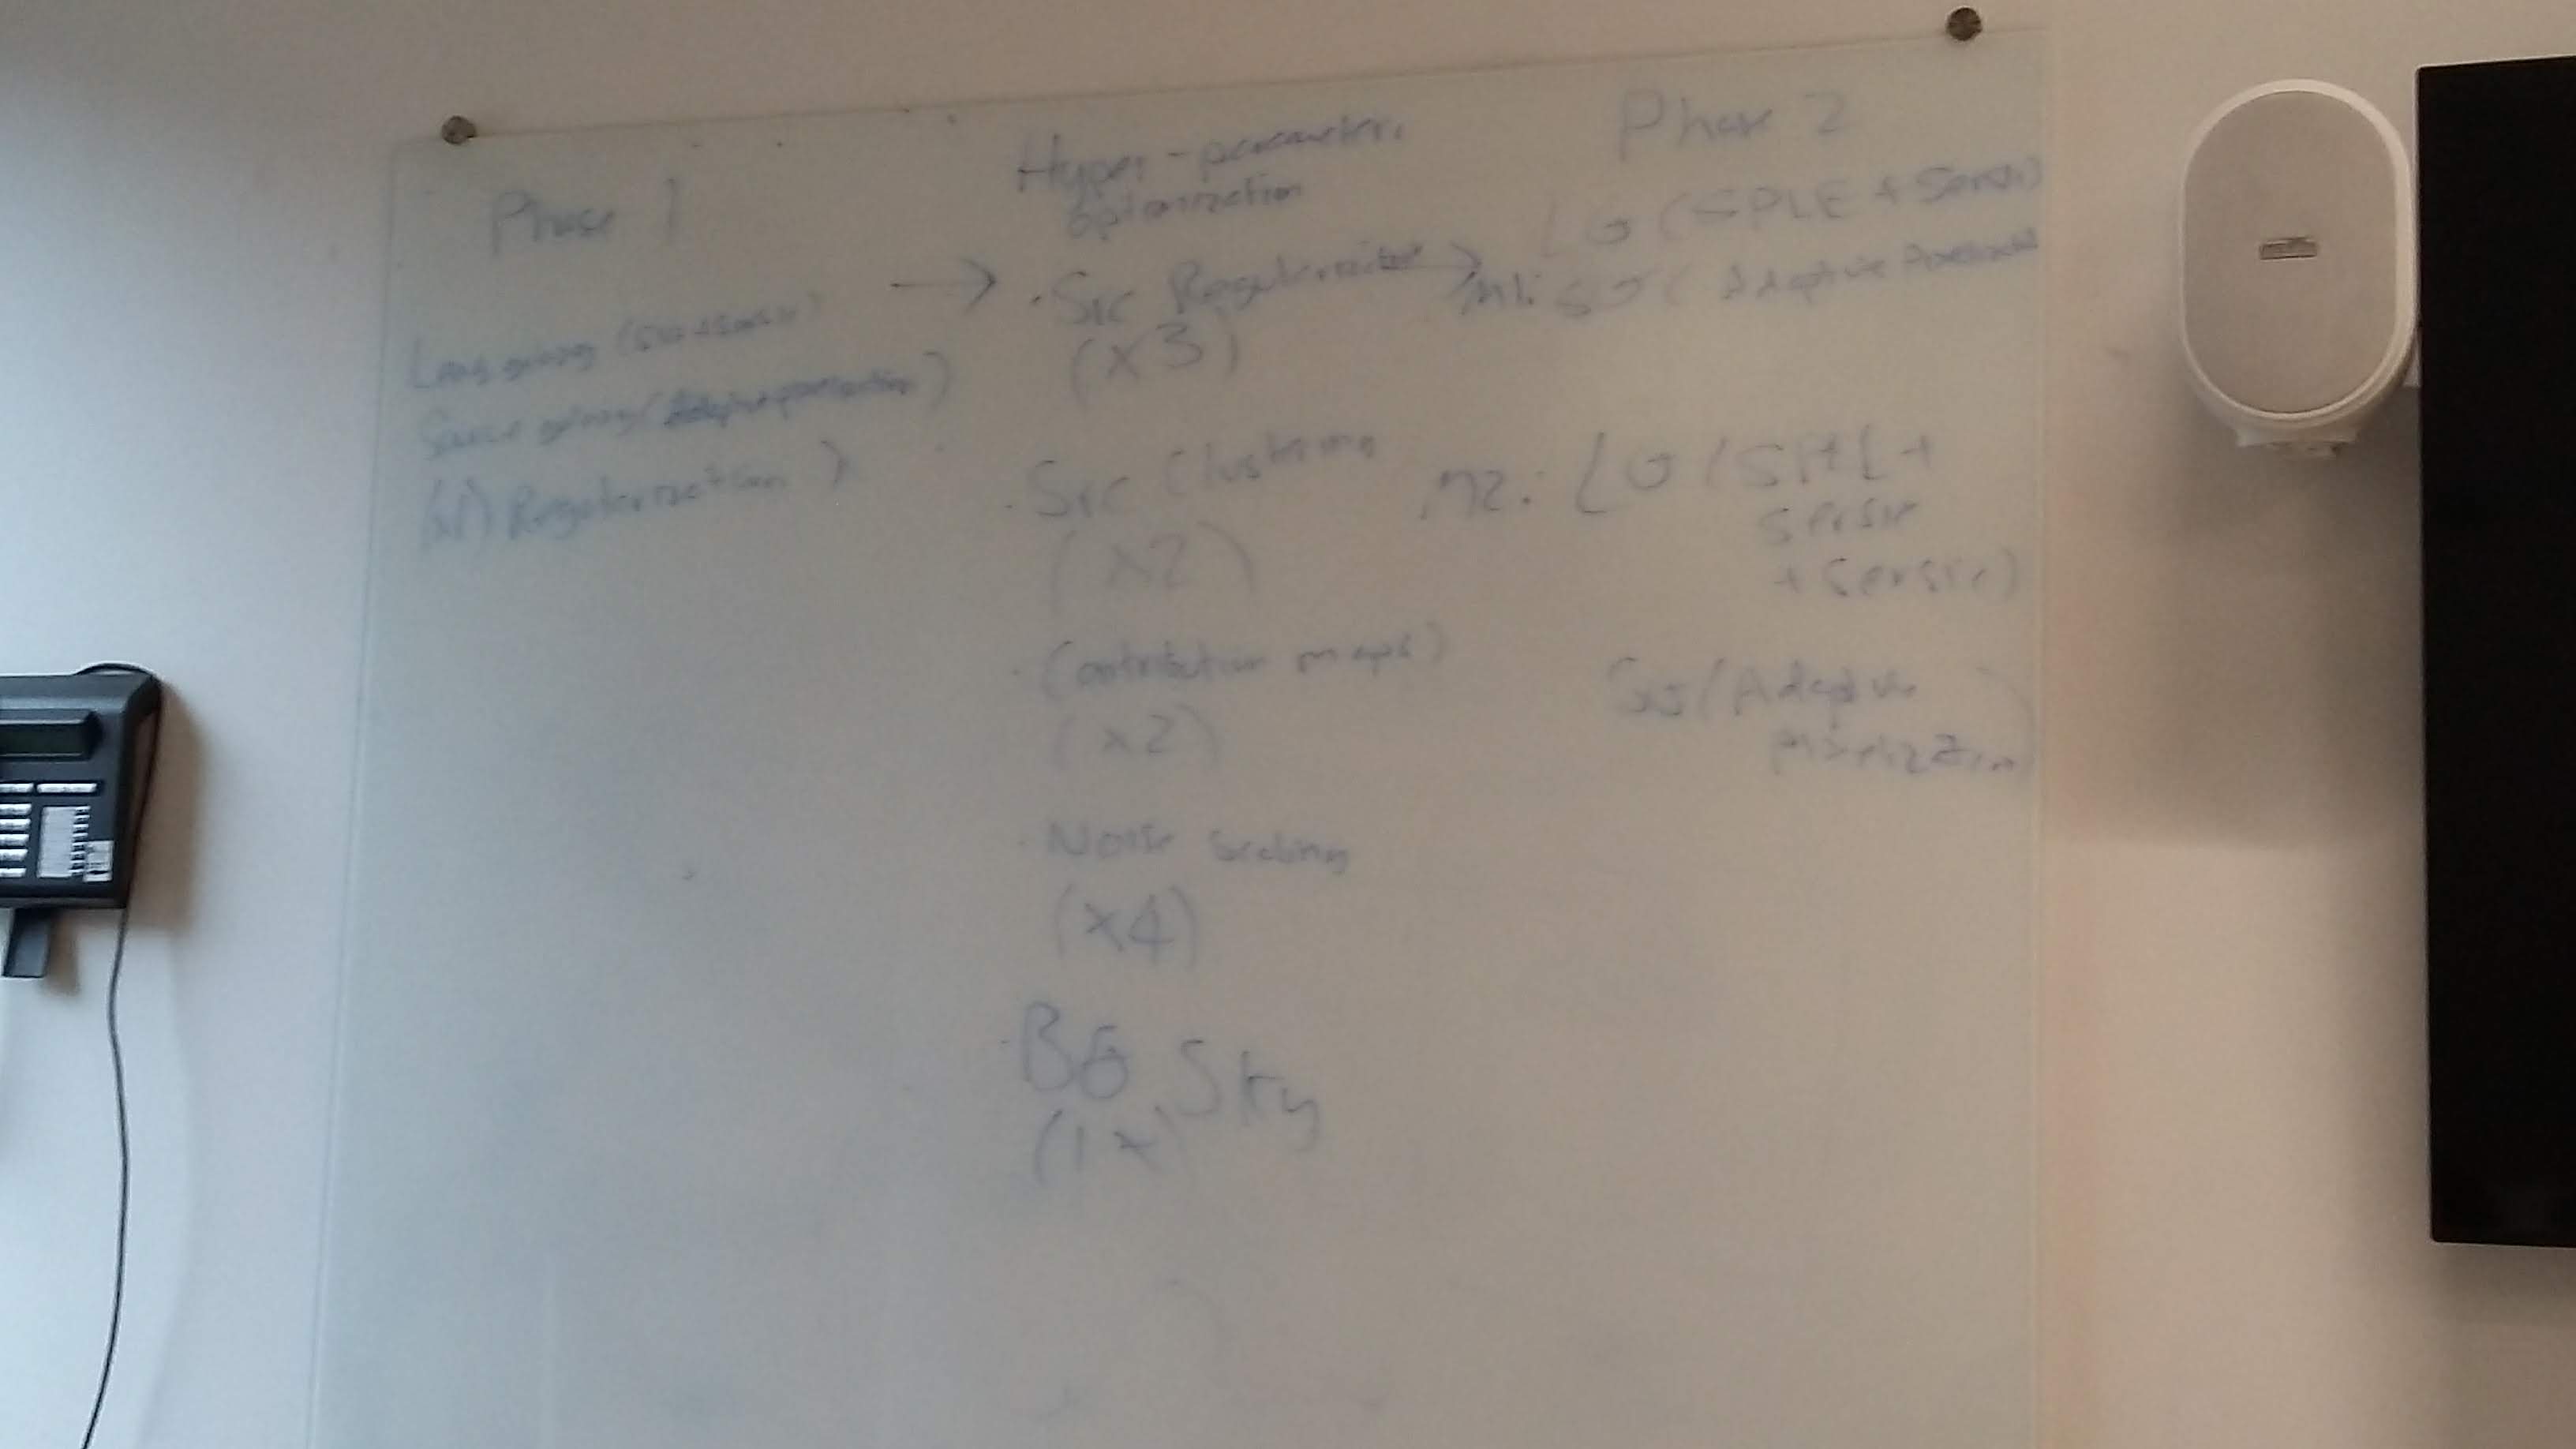 Phase 1
Lens galaxy (
Source galaxy (
(x1) Regularization )
Hyper-parameter
optimization
. Src Regularization
(x3)
. Src Clustering
(x2)
. Contribution maps)
(x2)
. Noise Scaling
(x4)
. BG Sky
(1x)
Phase 2
LG (SPLE + Sersic)
M1: SG ( Adaptive
M2: LG (SPLE +
Sersic
+ Sersic)
SG (Adaptive
pixelization)